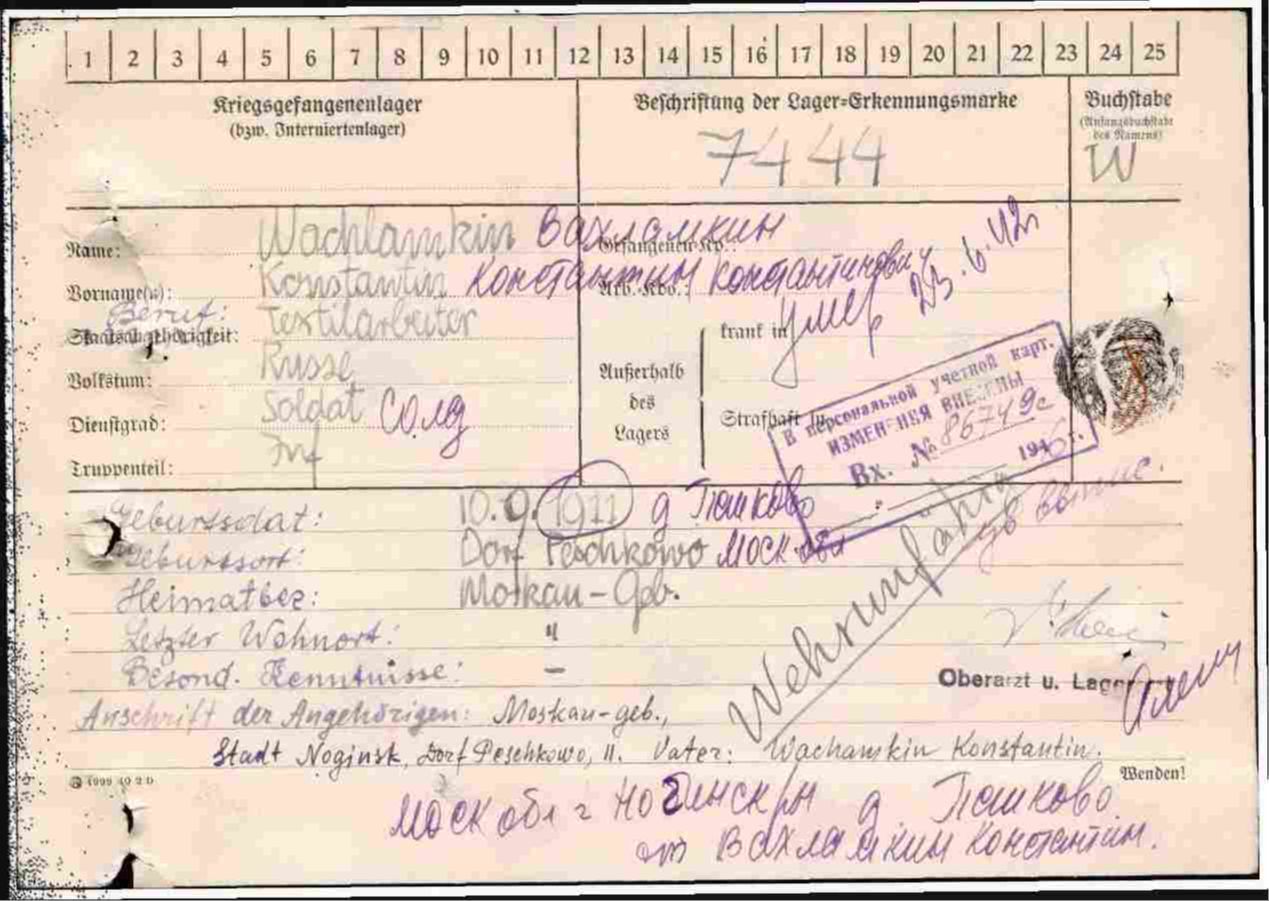 1 2 3 4 5 6 7 8 9 10 11 12 13 14 15 16 17 18 19 20 21 22 23 24 25
Kriegsgefangenenlager
(bzw. Interniertenlager)
Beschriftung der Lager=Erkennungsmarke
7444
Buchstabe
(Anfangsbuchstabe
des Namens)
W
Name: Wachlamkin Вахламкин Gefangenen-Nr.:
Vorname(n): Konstantin Константин Константинович
Arb.-Kdo.:
умер 23.6.42г
Beruf: Textilarbeiter
Staatsangehörigkeit:
Volkstum: Russe
Dienstgrad: Soldat солд
Truppenteil: Inf
Außerhalb
des
Lagers
krank in
Strafhaft in
В персональной учетной карт.
ИЗМЕНЕНИЯ ВНЕСЕНЫ
Вх. № 86749с
1946 г.
Geburtsdat: 10.9.1911 д Пешково
Geburtsort: Dorf Peschkowo Моск обл
Heimatbez: Moskau-Geb.
Letzter Wohnort: "
Besond. Kenntnisse: —
Wehrunfähig
Oberarzt u. Lager
Anschrift der Angehörigen: Moskau-geb.,
Stadt Noginsk, Dorf Peschkowo, 11. Vater: Wachamskin Konstantin.
1999 40 2 D
Wenden!
Моск обл г Ногинск рн д Пешково
от Вахламкин Константин.